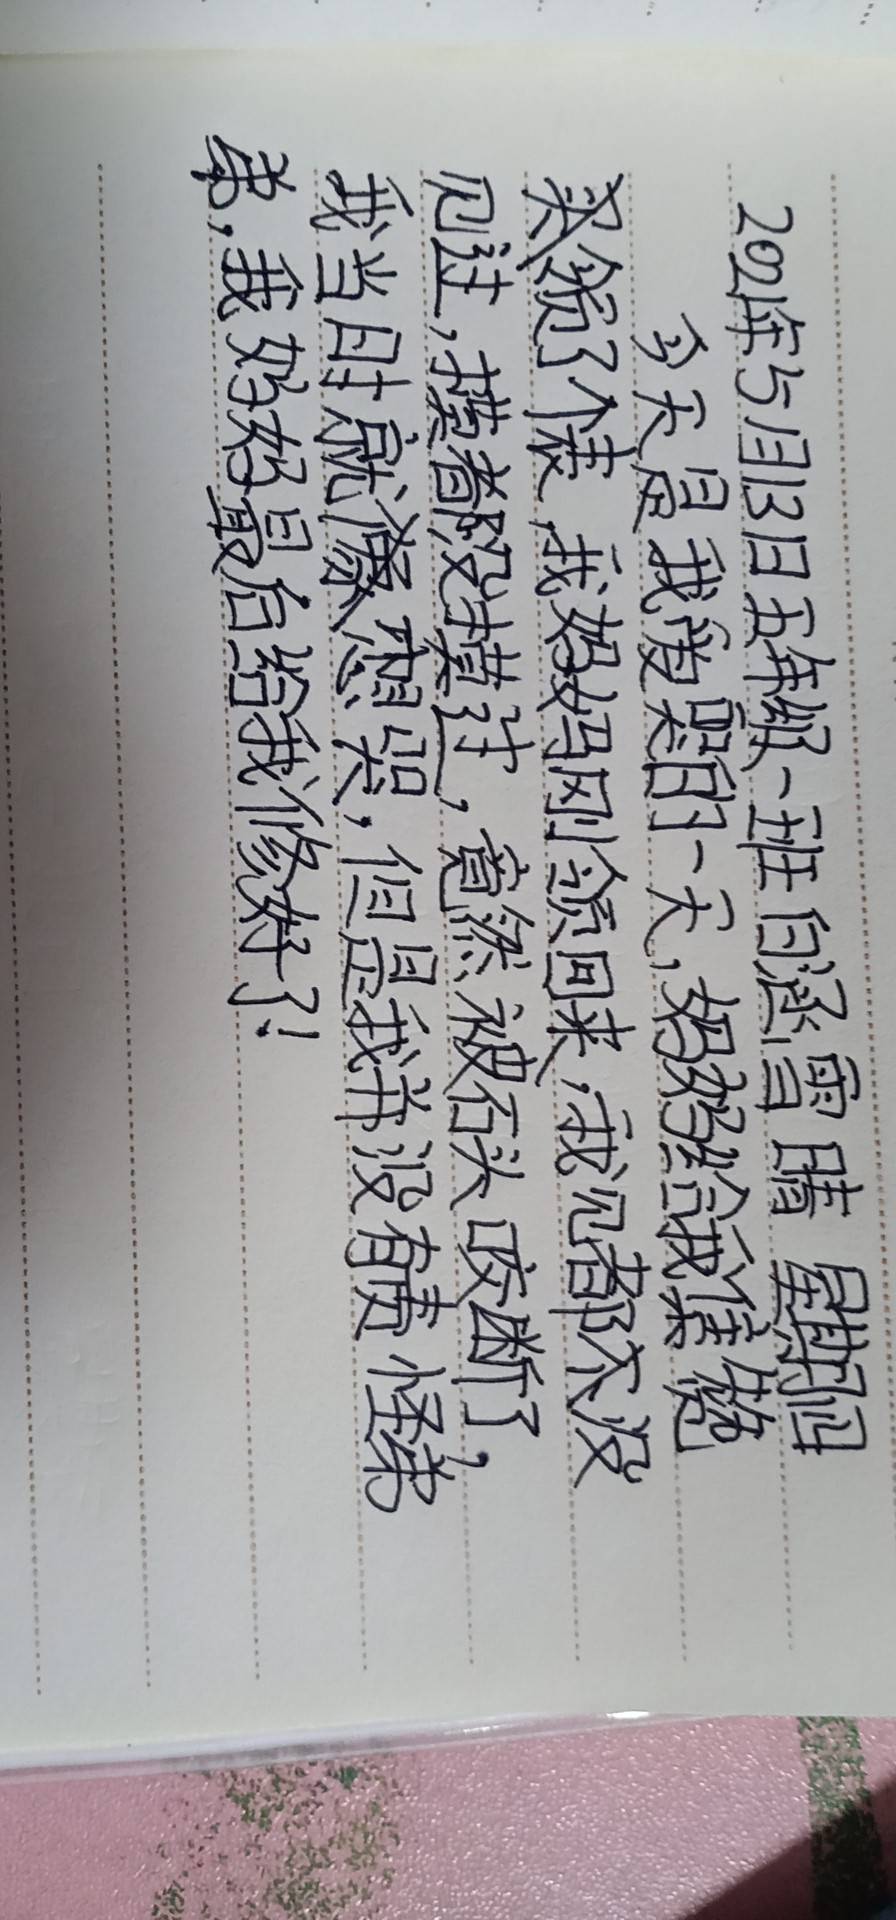 2021年5月13日五年级一班 白涵雪 晴 星期四
今天是我爱哭的一天,妈妈给我集
领了个,我妈妈刚领回来,我见都不没
见过,摸都没摸过,竟然被石头咬断了,
我当时就想哭,但是我并没有责怪弟
弟,我妈妈最后给我修好了!